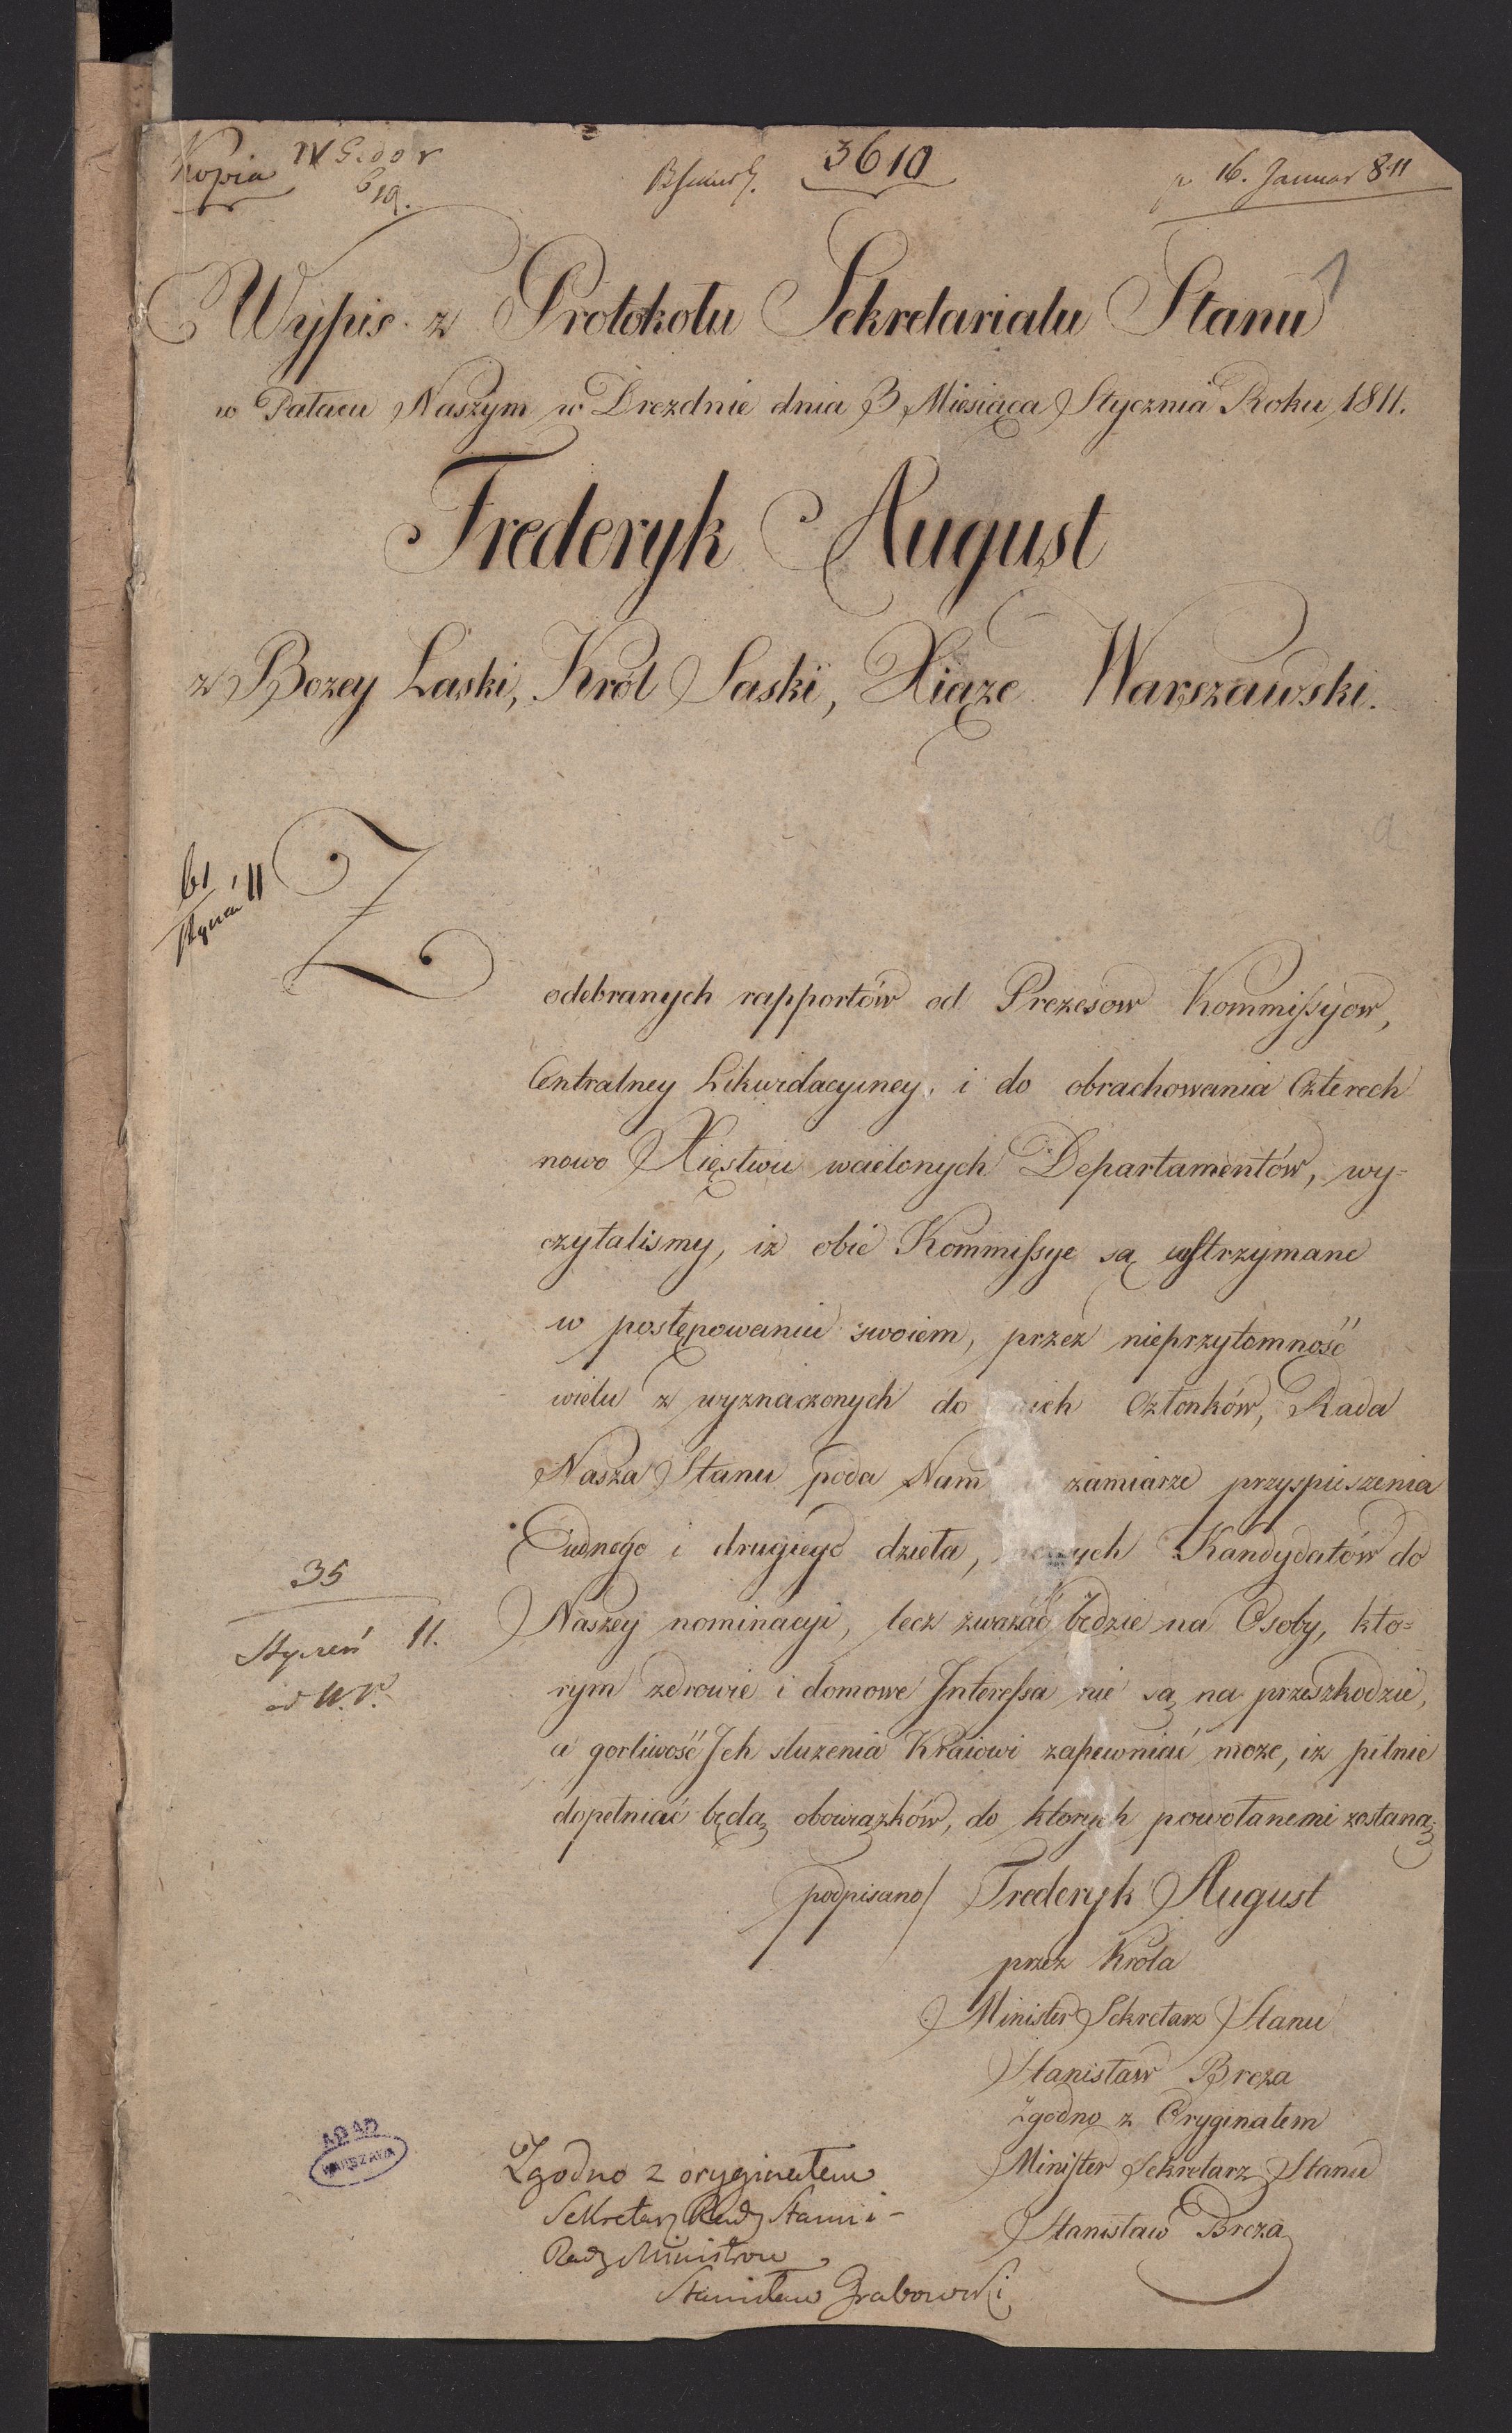 Kopia
3610
16. Januar 811
1
Wypis z Protokołu Sekretariatu Stanu
w Pałacu Naszym w Dreznie dnia 3 Miesiąca Stycznia Roku 1811.
Frederyk August
z Bozey Łaski, Król Saski, Xiąze Warszawski.
61
Styczeń 11
Z
odebranych rapportów od Prezesow Kommissyow,
Centralney Likwidacyiney, i do obrachowania Czterech
nowo Xięstwu wcielonych Departamentów, wy=
czytalismy, iz obie Kommissye są wstrzymane
w postępowaniu swoiem, przez nieprzytomność
wielu z wyznaczonych do nich Członków, Rada
Nasza Stanu poda Nam w zamiarze przyspieszenia
Jednego i drugiego dzieła, nowych Kandydatów do
Naszey nominacyi, lecz zważać będzie na Osoby, kto=
rym zdrowie i domowe Interessa nie są na przeszkodzie,
a gorliwość Ich sluzenia Kraiowi zapewniać moze, iz pilnie
dopełniać będą obowiązków, do ktorych powołanemi zostaną.
35
Styczeń 11.
podpisano/ Frederyk August
przez Krola
Minister Sekretarz Stanu
Stanisław Breza
Zgodno z Oryginałem
Minister Sekretarz Stanu
Stanisław Breza
Zgodno z oryginałem
Sekretarz Rady Stanu i
Rady Ministrow
Stanisław Grabowski
AGAD
WARSZAWA